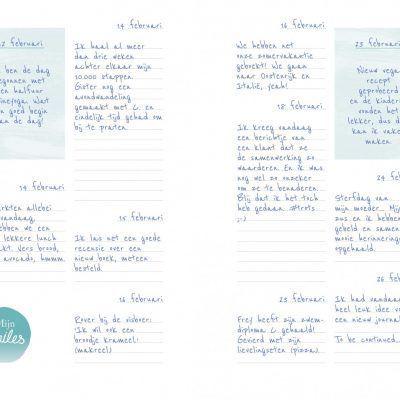 12 februari
ben de dag
begonnen met
een halfuur
Wat
goed begin
van de dag!
14 februari
allebei
vandaag,
hebben we een
lekkere lunch
Vers brood,
avocado, hmmm.
Mijn
smiles
14 februari
Ik haal al meer
dan drie weken
achter elkaar mijn
10.000 stappen.
Gister nog een
avondwandeling
gemaakt met L. en
eindelijk tijd gehad om
bij te praten.
15 februari
Ik las net een goede
recensie over een
nieuw boek, meteen
besteld.
16 februari
Rover bij de visboer:
'Ik wil ook een
broodje krameel!'
(makreel)
16 februari
We hebben net
onze zomervakantie
geboekt! We gaan
naar Oostenrijk en
Italië, yeah!
18 februari
Ik kreeg vandaag
een berichtje van
een klant dat ze
de samenwerking zo
waarderen. En ik was
nog wel zo onzeker
om ze te benaderen.
Blij dat ik het toch
heb gedaan. #trots
;-)
23 februari
Frey heeft zijn zwem-
diploma C gehaald!
Gevierd met zijn
lievelingseten (pizza).
23 februari
Nieuw vegan
recept
geprobeerd
en de kinderen
vonden het
lekker, dus dat
kan ik vaker
maken.
24
Sterfdag van
mijn moeder. Mijn
zus en ik hebben
gebeld en samen
mooie herinneringen
opgehaald.
26
Ik had vandaag
heel leuk idee voor
een nieuw journal
To be continued...